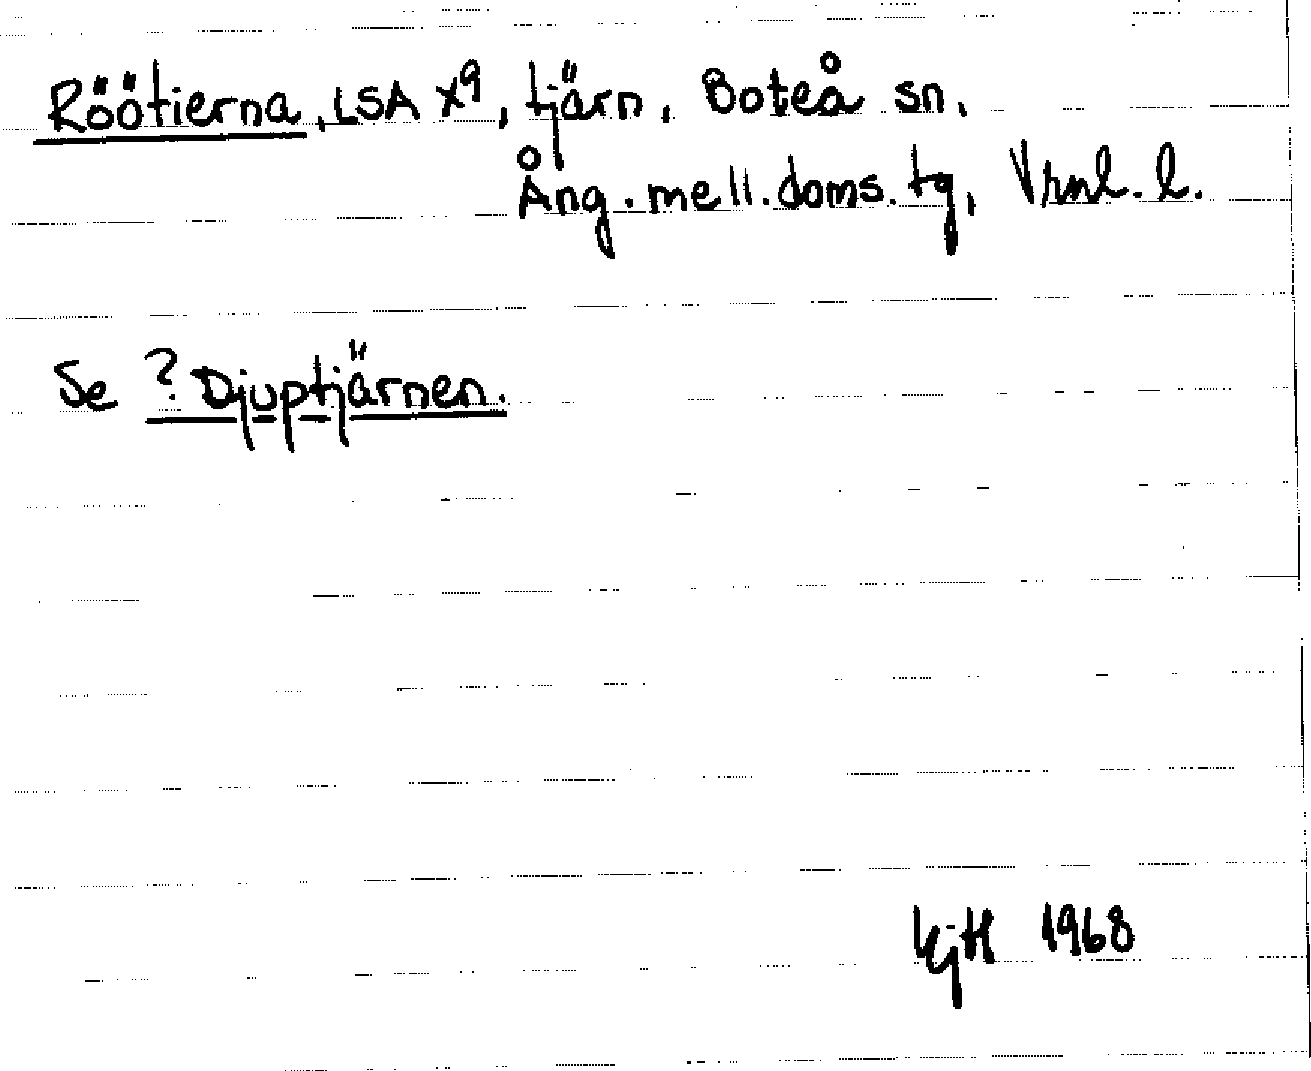 Röötierna, LSA X9, tjärn, Boteå sn,
Ång. mell. doms. tg, Vrnl. l.
Se ? Djuptjärnen.
KjH 1968